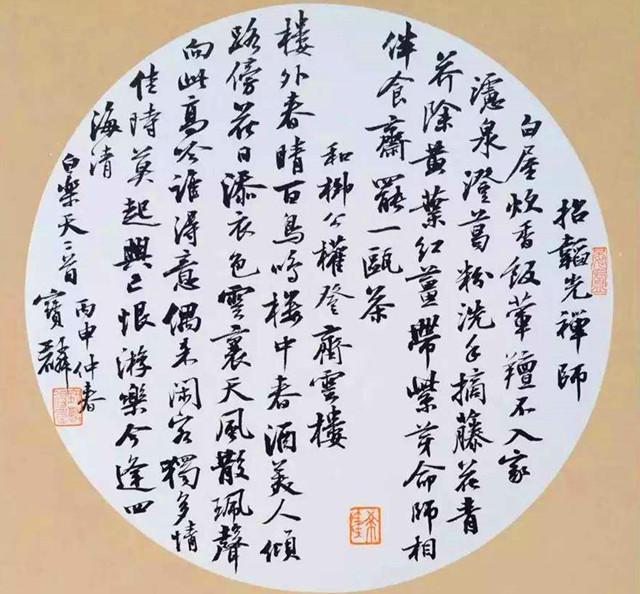 招韜光禪師
白屋炊香飯葷羶不入家
濾泉澄葛粉洗手摘藤花青
芥除黃葉紅薑帶紫芽命師相
伴食齋罷一甌茶
和柳公權登齊雲楼
楼外春晴百鳥鳴楼中春酒美人傾
路傍花日添衣色雲裏天風散珮聲
向此高吟誰得意偶來閑客獨多情
佳時莫起興亡恨游樂今逢四
海清
白樂天二首
丙申仲春
寶